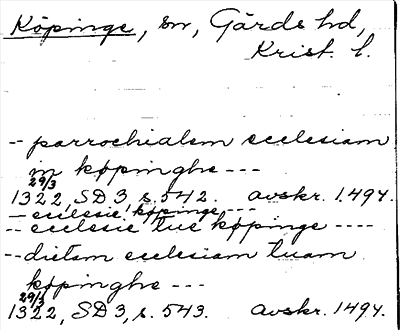 Köpinge, sn, Gärds hd,
Krist. l.
-- parrochialem ecclesiam
in køpinghe ---
29/3
1322, SD 3 s. 542. avskr. 1494.
-- ecclesie køpinge ---
-- ecclesie tue køpinge ----
-- dictam ecclesiam tuam
køpinghe ---
29/3
1322, SD 3, s. 543. avskr. 1494.